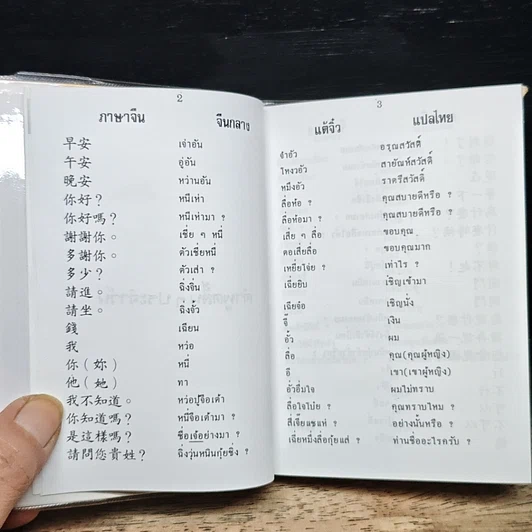 2
ภาษาจีน จีนกลาง
早安 เจ่าอัน
午安 อู่อัน
晚安 หว่านอัน
你好? หนีเห่า
你好嗎? หนีเห่ามา ?
謝謝你。 เซี่ย ๆ หนี่
多謝你。 ตัวเซี่ยหนี่
多少? ตัวเส่า ?
請進。 ฉิ่งจิ้น
請坐。 ฉิ่งจั้ว
錢 เฉียน
我 หว่อ
你(妳) หนี่
他(她) ทา
我不知道。 หว่อปู้จือเต๋า
你知道嗎? หนี่จือเต๋ามา ?
是這樣嗎? ซื่อเจ้อย่างมา ?
請問您貴姓? ฉิ่งวุ่นหนินกุ้ยซิ่ง ?
3
แต้จิ๋ว แปลไทย
จ๋าอัว อรุณสวัสดิ์
โหงวอัว สายัณห์สวัสดิ์
หมึงอัว ราตรีสวัสดิ์
ลื่อห้อ ? คุณสบายดีหรือ ?
ลื่อห้อมา ? คุณสบายดีหรือ ?
เสี่ย ๆ ลื่อ ขอบคุณ
ตอเสี่ยลื่อ ขอบคุณมาก
เหยี่ยโจ่ย ? เท่าไร ?
เฉี่ยยิบ เชิญเข้ามา
เฉี่ยจ๋อ เชิญนั่ง
จี๊ เงิน
อั้ว ผม
ลื่อ คุณ(คุณผู้หญิง)
อี เขา(เขาผู้หญิง)
อั๋วอื่มใจ ผมไม่ทราบ
ลื่อใจโบ่ย ? คุณทราบไหม ?
สี่เจี๊ยแซแห่ ? อย่างนั้นหรือ ?
เฉี่ยหมึ่งลื่อกุ้ยแส่ ? ท่านชื่ออะไรครับ ?